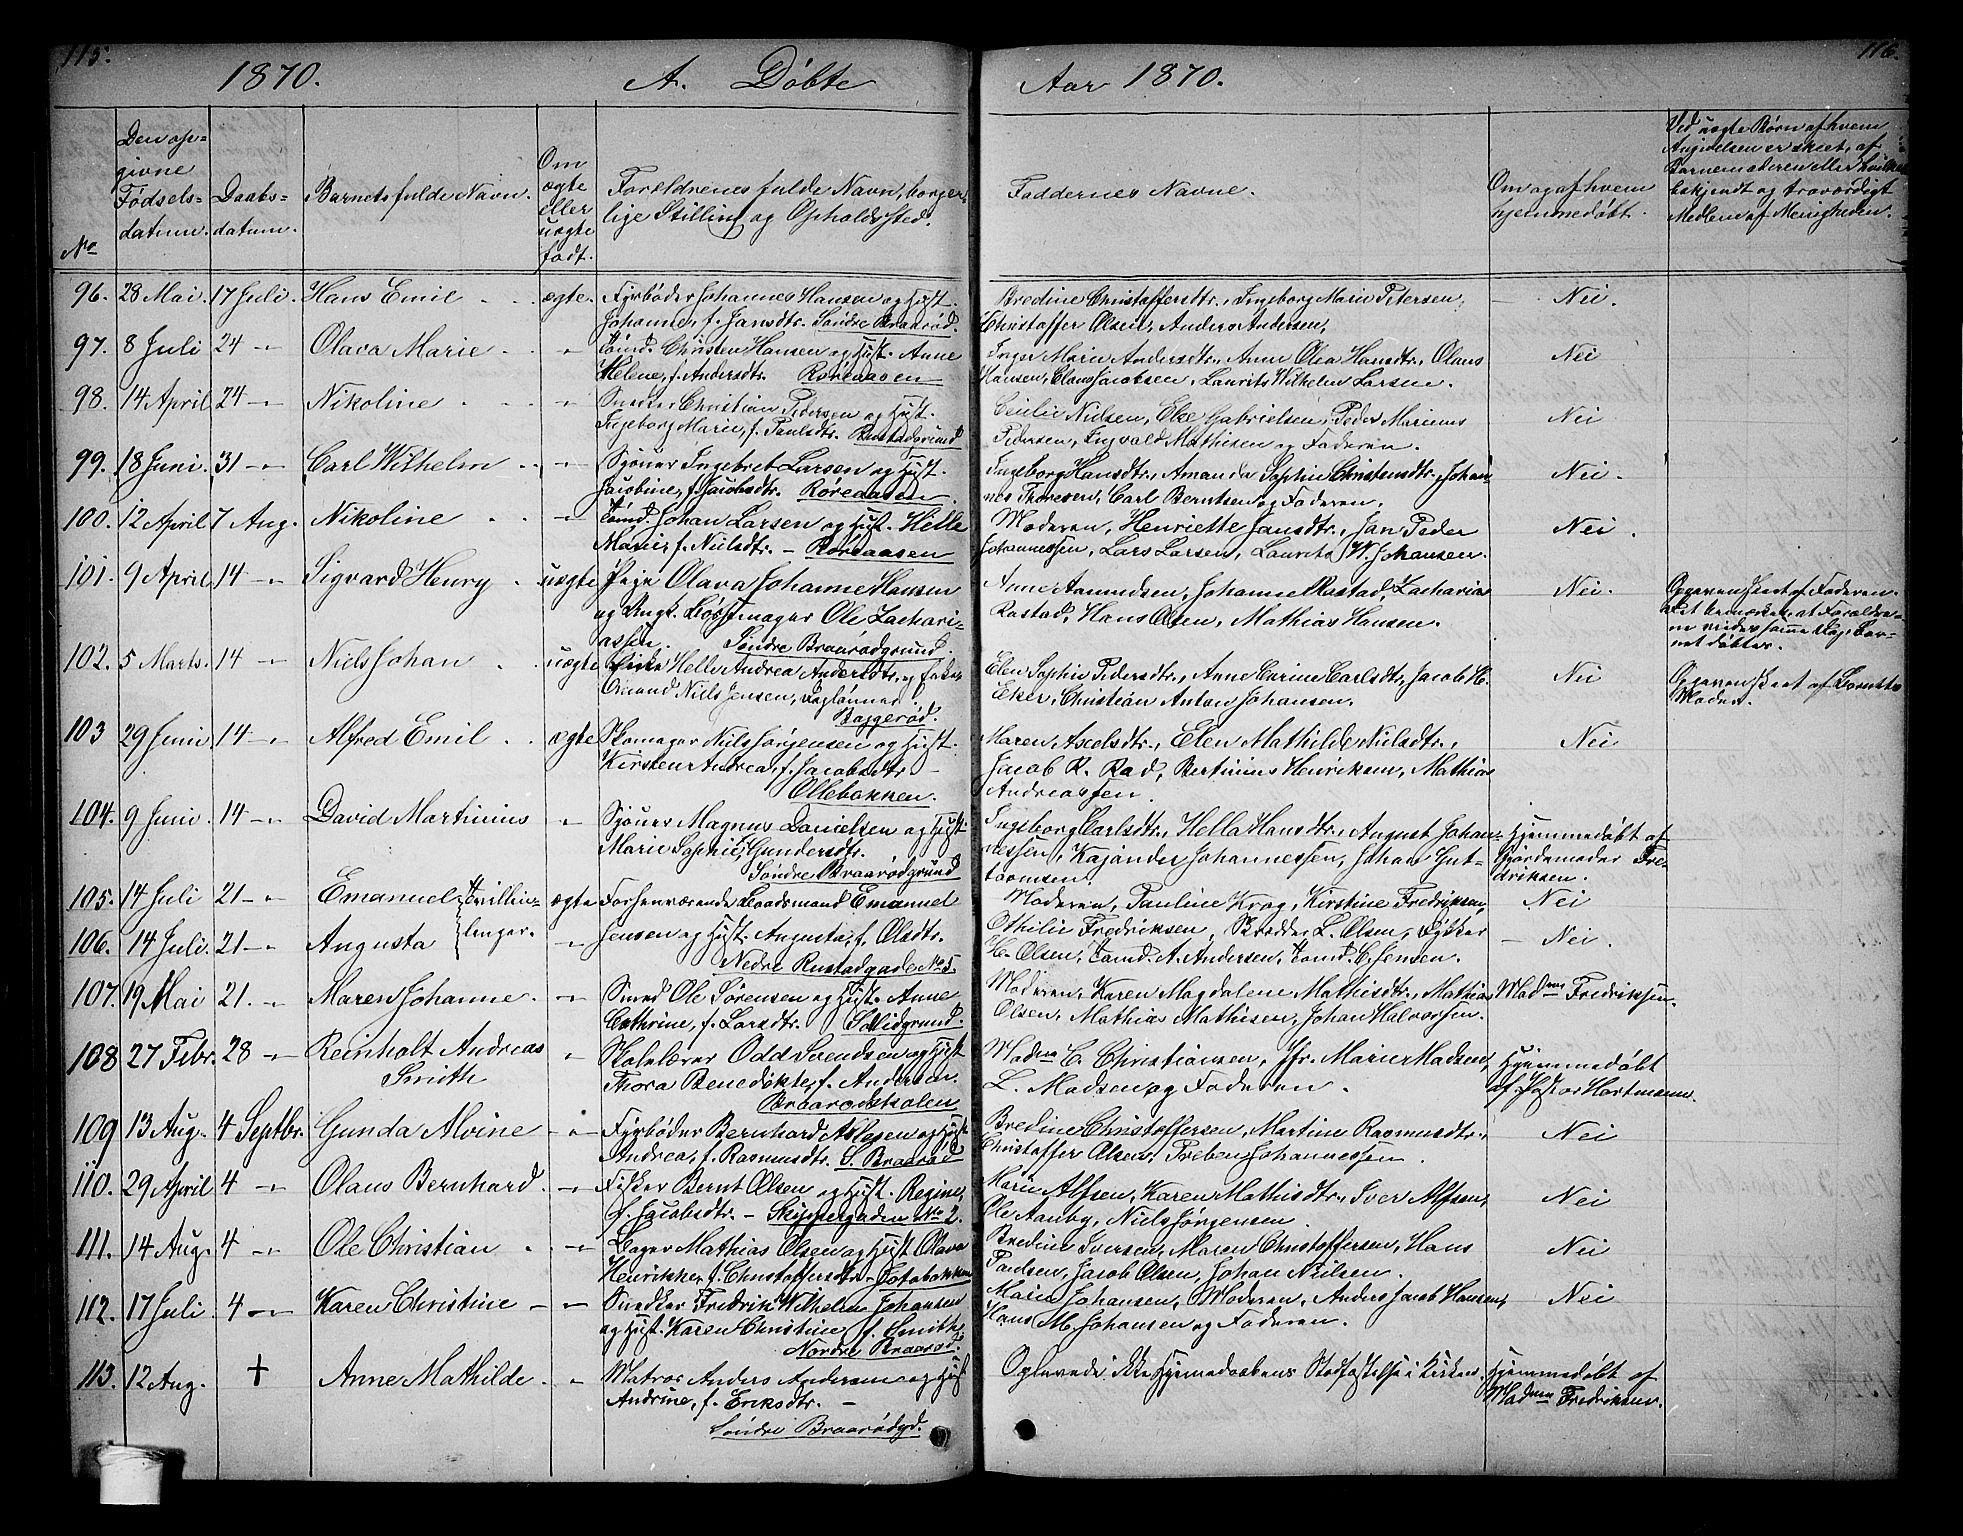 115.
1870.
A. Døbte
No
Den op=
givne
Fødsels-
datum.
Daabs-
datum.
Barnets fulde Navn.
Om
ægte
eller
uægte
født.
Forældrenes fulde Navn, borger-
lige Stilling og Opholdssted.
96. 28 Mai. 17 Juli. Hans Emil ægte. Fyrbøder Johannes Hansen og Hust.
Johanne, f. Jansdtr. Søndre Braarød.
97. 8 Juli 24 -"- Olava Marie " Tømd. Christen Hansen og Hust. Anne
Helene, f. Andersdtr. Røreaasen
98. 14 April 24 -"- Nikoline " Christian Pedersen og Hust.
Ingeborg Marie, f. Paulsdtr. Rustadgrund
99. 18 Juni. 31 -"- Carl Wilhelm " Sjøm Ingebret Larsen og Hust.
Jacobine, f. Jacobsdtr. Røreaasen
100. 12 April 7 Aug. Nikoline " Tømd. Johan Larsen og Hust. Helle
Marie, f. Nielsdtr. - Røreaasen
101. 9 April 14 -"- Sigvard Henry uægte Pige Olava Johanne Hansen
og Ungk. Bøssemager Ole Zachari-
assen. Søndre Braarødgrund.
102. 5 Marts. 14 -"- Niels Johan uægte Helle Andrea Andersdtr. og
Niels Jensen, Daglønner.
Baggerød.
103 29 Juni 14 -"- Alfred Emil ægte Skomager Niels Jørgensen og Hust.
Kirsten Andrea, f. Jacobsdtr. -
Ollebakken.
104. 9 Juni. 14 -"- David Martinius " Magnus Danielsen og Hust.
Marie Sophie, Gundersdtr.
Søndre Braarødgrund
105. 14 Juli 21 -"- Emanuel Tvillin- ægte Forhenværende Baadsmand Emanuel
106. 14 Juli. 21 -"- Augusta linger. " Jensen og Hust. Augusta, f. Olsdtr.
Nedre Rustadgade No 5.
107. 19 Mai 21. -"- Maren Johanne. " Smed Ole Sørensen og Hust. Anne
Cathrine, f. Larsdtr.
108 27 Febr. 28 -"- Reinholt Andreas " Skolelærer Odd Svendsen og Hust
Smith Thora Benedikte, f. Andersen.
Braarødskolen
109 13 Aug. 4 Septbr. Gunda Alvine -"- Fyrbøder Bernhard Aslasen og Hust
Andrea, f. Rasmusdtr. S. Braarød
110. 29 April 4 -"- Olaus Bernhard. -"- Fisker Bernt Olsen og Hust. Regine,
f. Jacobsdtr. - Skippergaden No 2.
111. 14 Aug. 4 -"- Ole Christian -"- Bager Mathias Olsen og Hust Olava
Henrikke, f. Christoffersdtr.
112. 17 Juli 4 -"- Karen Christine -"- Snedker Fredrik Wilhelm Johansen
og Hust. Karen Christine f. Smith
Nordre Braarød.
113. 12 Aug. † Anne Mathilde. -"- Matros Anders Andersen og Hust
Andrine, f. Eriksdtr. -
Søndre Braarødgd.
116.
Aar 1870.
Faddernes Navne.
Om og af hvem
hjemmedøbt.
Ved uægte Børn af hvem
Angivelsen er skeet, af
Barnemoderen eller hvilket
bekjendt og troværdigt
Medlem af Menigheden.
Bredine Christoffersdtr., Ingeborg Marie Petersen, - Nei.
Christoffer Olsen, Anders Andersen,
Inger Marie Andersdtr., Anne Olea Hansdtr., Olaus Nei
Hansen, Claus Jacobsen, Laurits Wilhelm Larsen.
Cecilie Nilsen, Else Gabrielsen, Peder Marinus Nei
Pedersen, Ingvald Mathisen og Faderen.
Ingeborg Hansdtr., Amanda Sophie Christensdtr., Johan- Nei.
nes Thoresen, Carl Berntsen og Faderen.
Moderen, Henriette Jansdtr., Jan Peder Nei.
Johannessen, Lars Larsen, Laurits W. Johansen.
Anne Aamundsen, Johanne Rustad, Zacharias Nei.
Rustad, Hans Olsen, Mathias Hansen.
Opgaven skeet af Faderen.
det bemærkes, at Forældre-
ne vies samme Dag, Bar-
net døbtes.
Elen Sophie Pedersdtr., Anne Carine Carlsdtr., Jacob H. Nei
Eker, Christian Anton Johansen.
Opgaven skeet af Barnets
Moder.
Maren Axelsdtr., Elen Mathilde Nielsdtr., Nei
Jacob R. Rad, Bertinius Henriksen, Mathias
Andreassen.
Ingeborg Carlsdtr., Hella Hansdtr., August Johan- Hjemmedøbt af
nessen, Kajander Johannessen, Johan Gut- Gjordemoder Fre-
tormsen. driksen.
Moderen, Pauline Krog, Kirstine Fredriksen, Nei
Othilie Fredriksen, L. Olsen, - Nei.
H. Olsen, Tømd. A. Andersen, Tømd. C. Jensen.
Moderen, Karen Magdalene Mathisdtr., Mathias Madme Fredriksen.
Olsen, Mathias Mathisen, Johan Halvorsen.
Madme C. Christiansen, Jfr. Marie Madsen, Hjemmedøbt
L. Madsen og Faderen. af Pastor Hartmann.
Bredine Christoffersen, Martine Rasmusdtr., Nei
Christoffer Olsen, Preben Johannessen.
Marie Alfsen, Karen Mathisdtr., Iver Alfsen, Nei
Ole Aanby, Niels Jørgensen.
Bredine Iversen, Maren Christoffersen, Hans Nei
Paulsen, Jacob Olsen, Johan Nielsen.
Marie Johansen, Moderen, Anders Jacob Hansen, Nei
Hans M. Johansen og Faderen.
Oplevede ikke Hjemmedaabens Stadfæstelse i Kirken. Hjemmedøbt af
Madme Fredriksen.